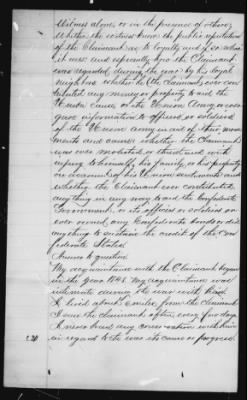 Witness alone, or in the presence of others,
Whether the witness knows the public reputation
of the Claimant as to loyalty and if so what
it was and especially how the Claimant
was regarded during the war by his loyal
neighbors whether he (the Claimant) ever con-
tributed any money or property to aid the
Union cause or the Union Army or ever
gave information to officers or soldiers
of the Union army in aid of their move-
ments and causes whether the Claimant
was ever molested or threatened with
injury to himself, his family, or his property
on account of his Union sentiments and
whether the Claimant ever contributed
any thing in any way to aid the Confederate
Government or its officers or soldiers or
ever owned any Confederate bonds or did
any thing to sustain the credit of the Con
federate States.
Answer to question
My acquaintance with the Claimant began
in the year 1848. My acquaintance was
intimate during the war with him
I lived about 2 miles from the claimant
I saw the claimant often every few days
I never had any conversation with him
in regard to the war its cause or progress.